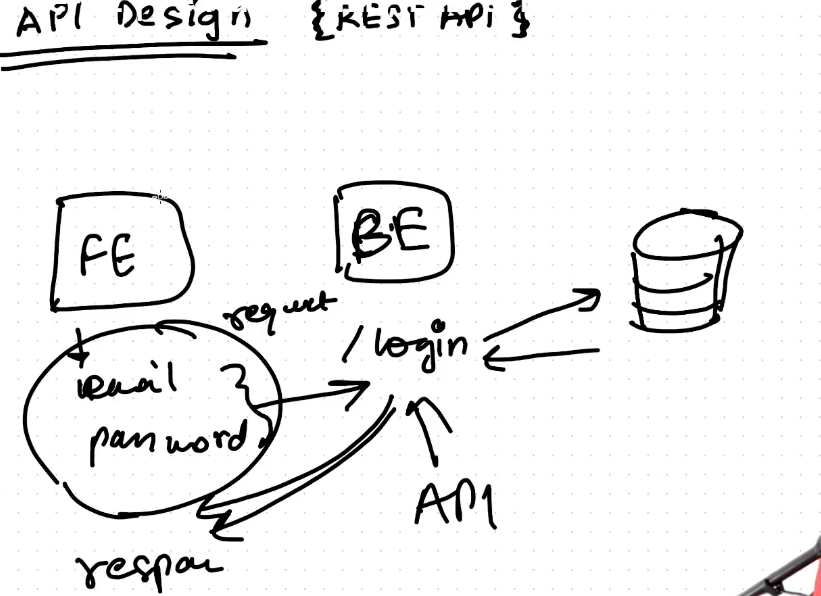 API Design {REST API}
FE
BE
request
/login
email }
password
API
respon